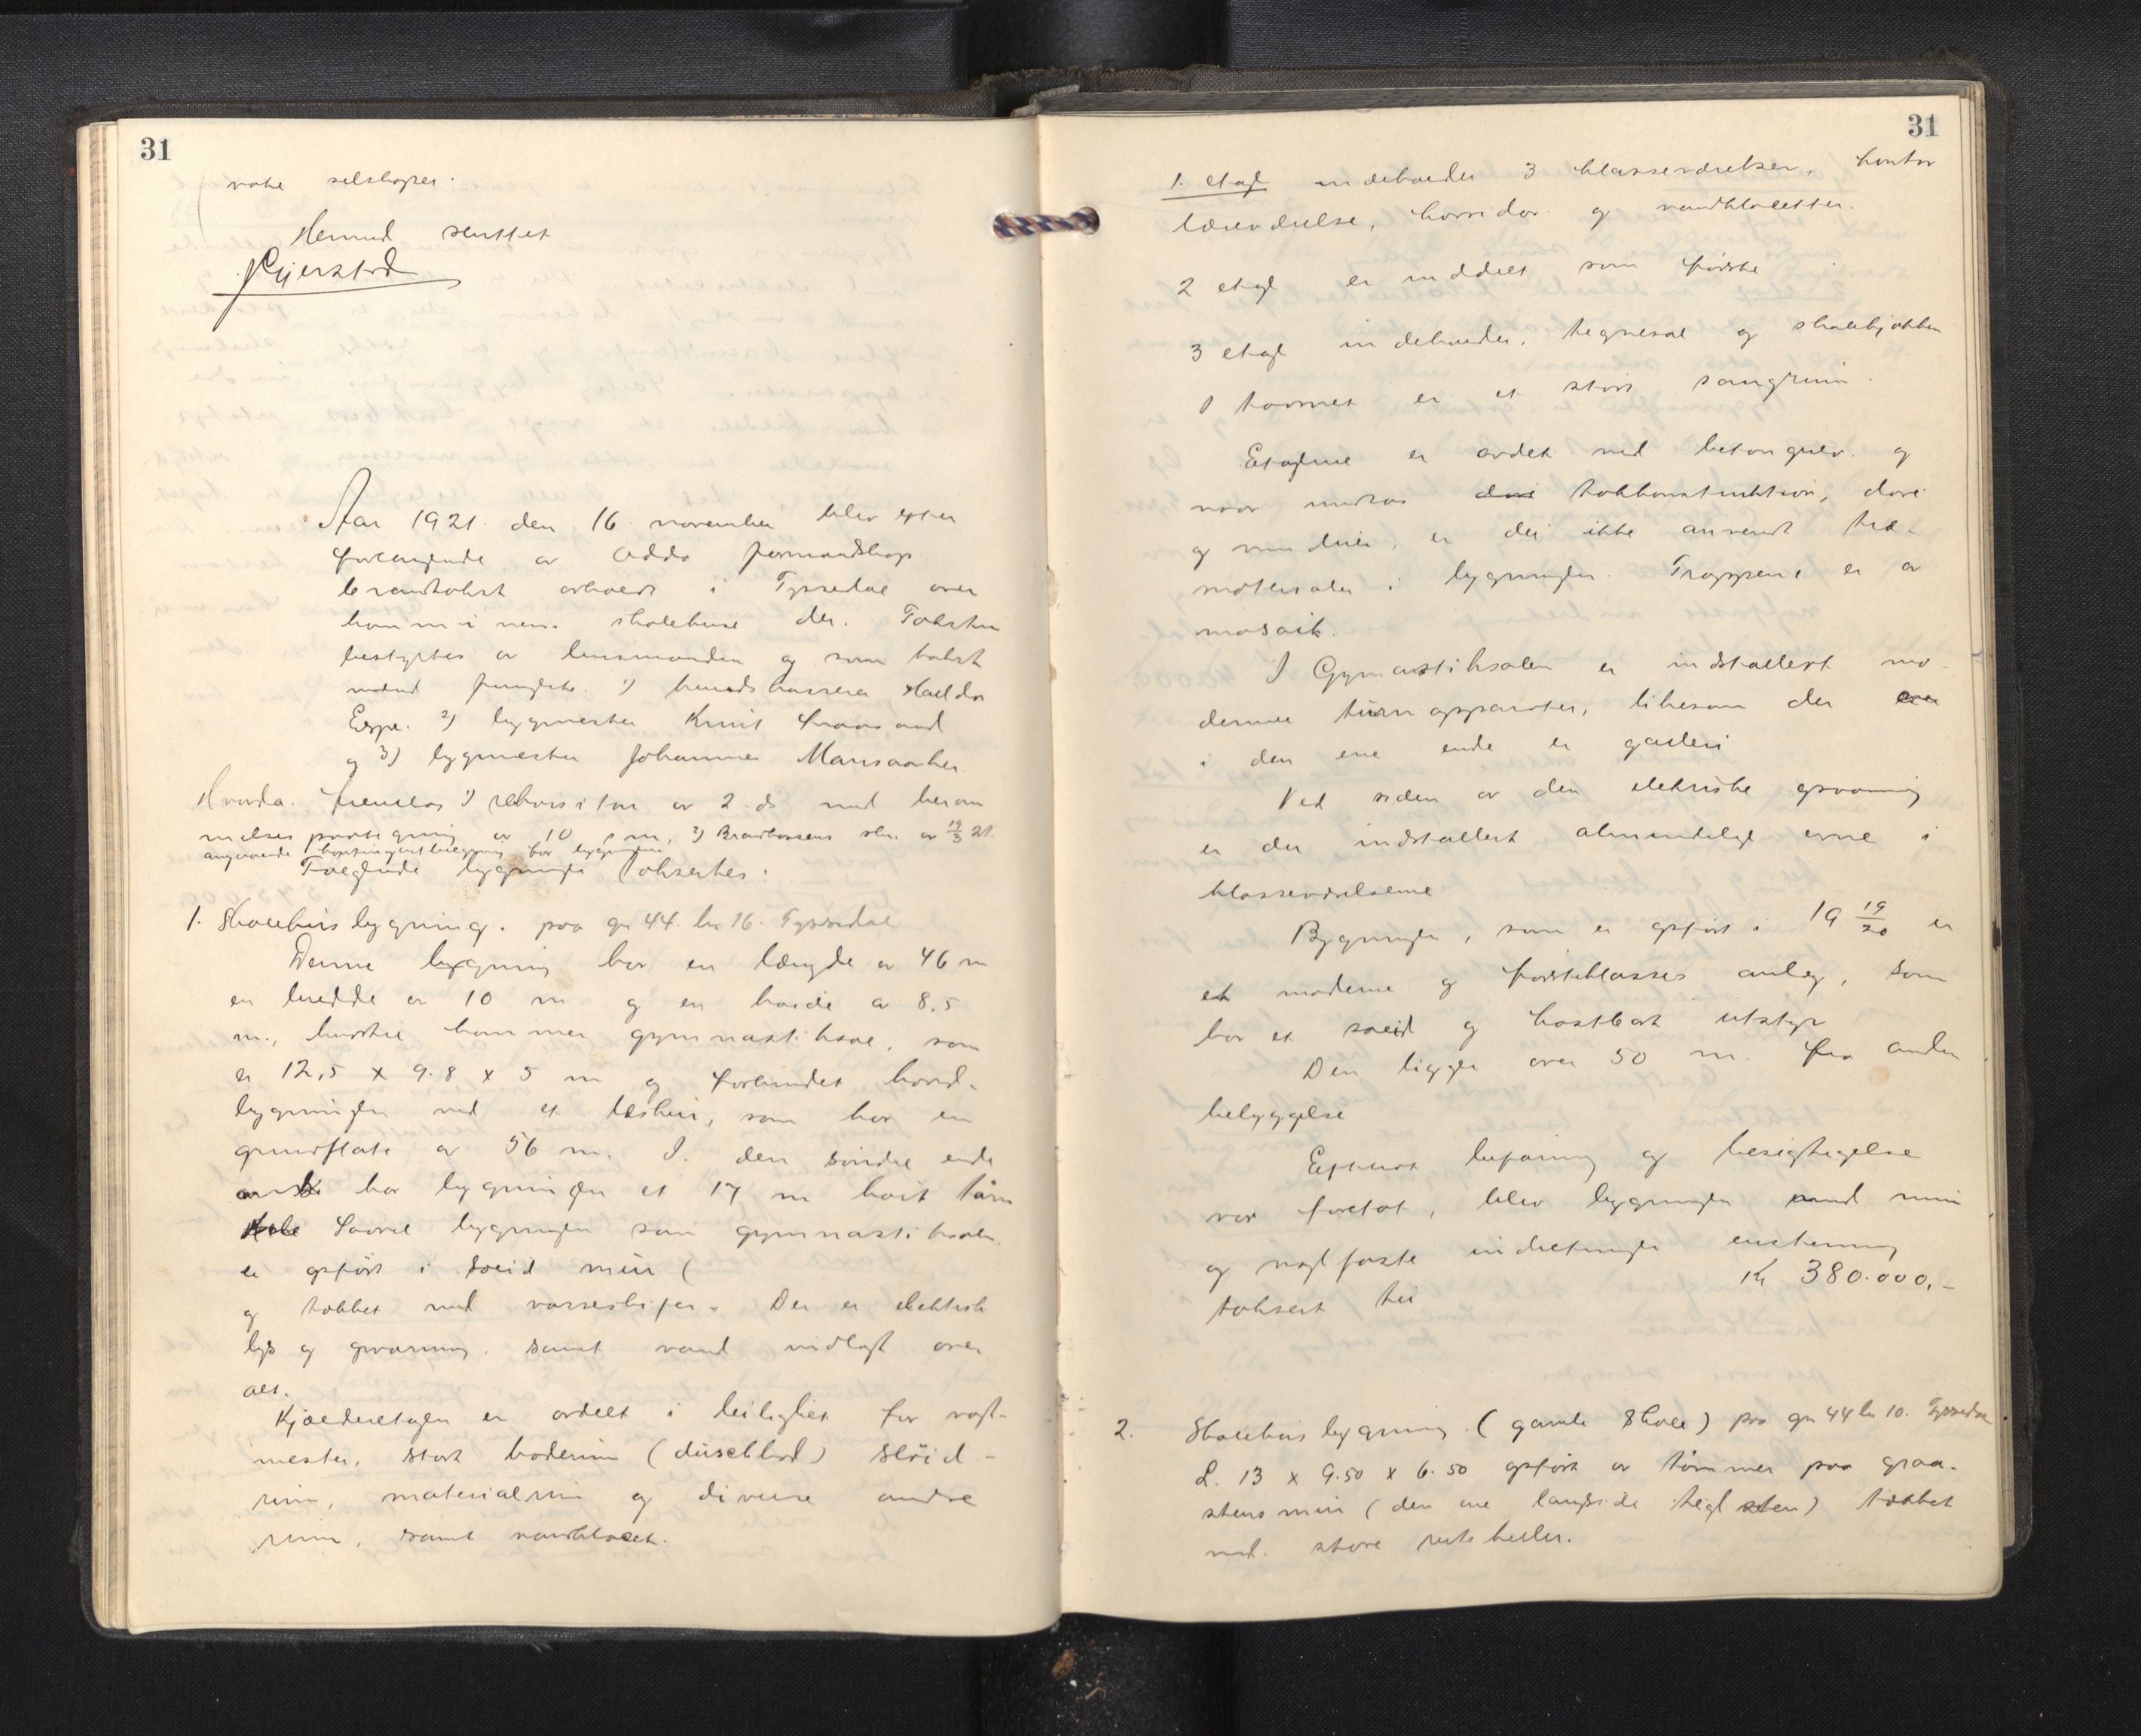 31
vate selskaper.
Hermed sluttet
Kjerstad
Aar 1921 den 16 november blev efter
forlangende av Odda formandskap
brandtakst avholdt i Tyssedal over
kommunens skolehuse der. Taksten
bestyrtes av lensmanden og som takst
mænd fungerte 1) herredskasserer Haldor
Espe. 2) bygmester Knut
og 3) bygmester Johannes Mansaaker
Hvorda fremlas 1) rekvisition av 2 ds med beram
melses paategning av 10 s m, 2) Brandkassens skr. av 19/3 21.
angaaende for bygningen
Følgende bygninger taksertes:
1. Skolehusbygning. paa gn 44. bn 16. Tyssedal
Denne bygning har en længde av 46 m
en bredde av 10 m og en høide av 8,5
m., hertil kommer gymnastiksal, som
er 12,5 x 9.8 x 5 m og forbindes hoved-
bygningen med et læskur, som har en
grundflate av 56 m. I den søndre ende
har bygningen et 17 m høit tårn
Saavel bygningen som gymnastiksalen
er opført i solid mur (
og tækket med vasseskifer. Der er elektrisk
lys og opvarming samt vand indlagt over
alt.
Kjælderetagen er avdelt i leilighet for vagt-
mester, stort baderum (duschbad) sløid-
rum, materialrum og diverse andre
rum, samt vandkloset.
31
1. etage indeholder 3 klasseværelser, kontor
læreværelse, korridor og vandklosetter.
2 etage er inddelt som første
3 etage indeholder, tegnesal og skolekjøkken
I taarnet er et stort sangrum.
Etagene er avdelt med betongulv og
naar undtas takkonstruktion, døre
og vinduer, er der ikke anvendt træ-
materialer i bygningen. Trappene er av
mosaik.
I Gymnastiksalen er indstallert mo-
derne turnapparater, likesom der
i den ene ende er galleri
Ved siden av den elektriske opvarming
er der indstallert almindelige ovne i
klasseværelserne
Bygningen, som er opført i 19 19/20 er
et moderne og førsteklasses anlæg, som
har et solid og kostbart utstyr
Den ligger over 50 m. fra anden
bebyggelse
Efterat befaring og besigtigelse
var foretat, blev bygningen med mur
og naglfaste indretninger enstemmig
taksert til Kr 380.000,-
2. Skolehusbygning. (gamle Skole) paa gn 44 bn 10. Tyssedal
L. 13 x 9.50 x 6.50 opført av tømmer paa graa-
stensmur (den ene langside teglsten) tækket
med store ruteheller.